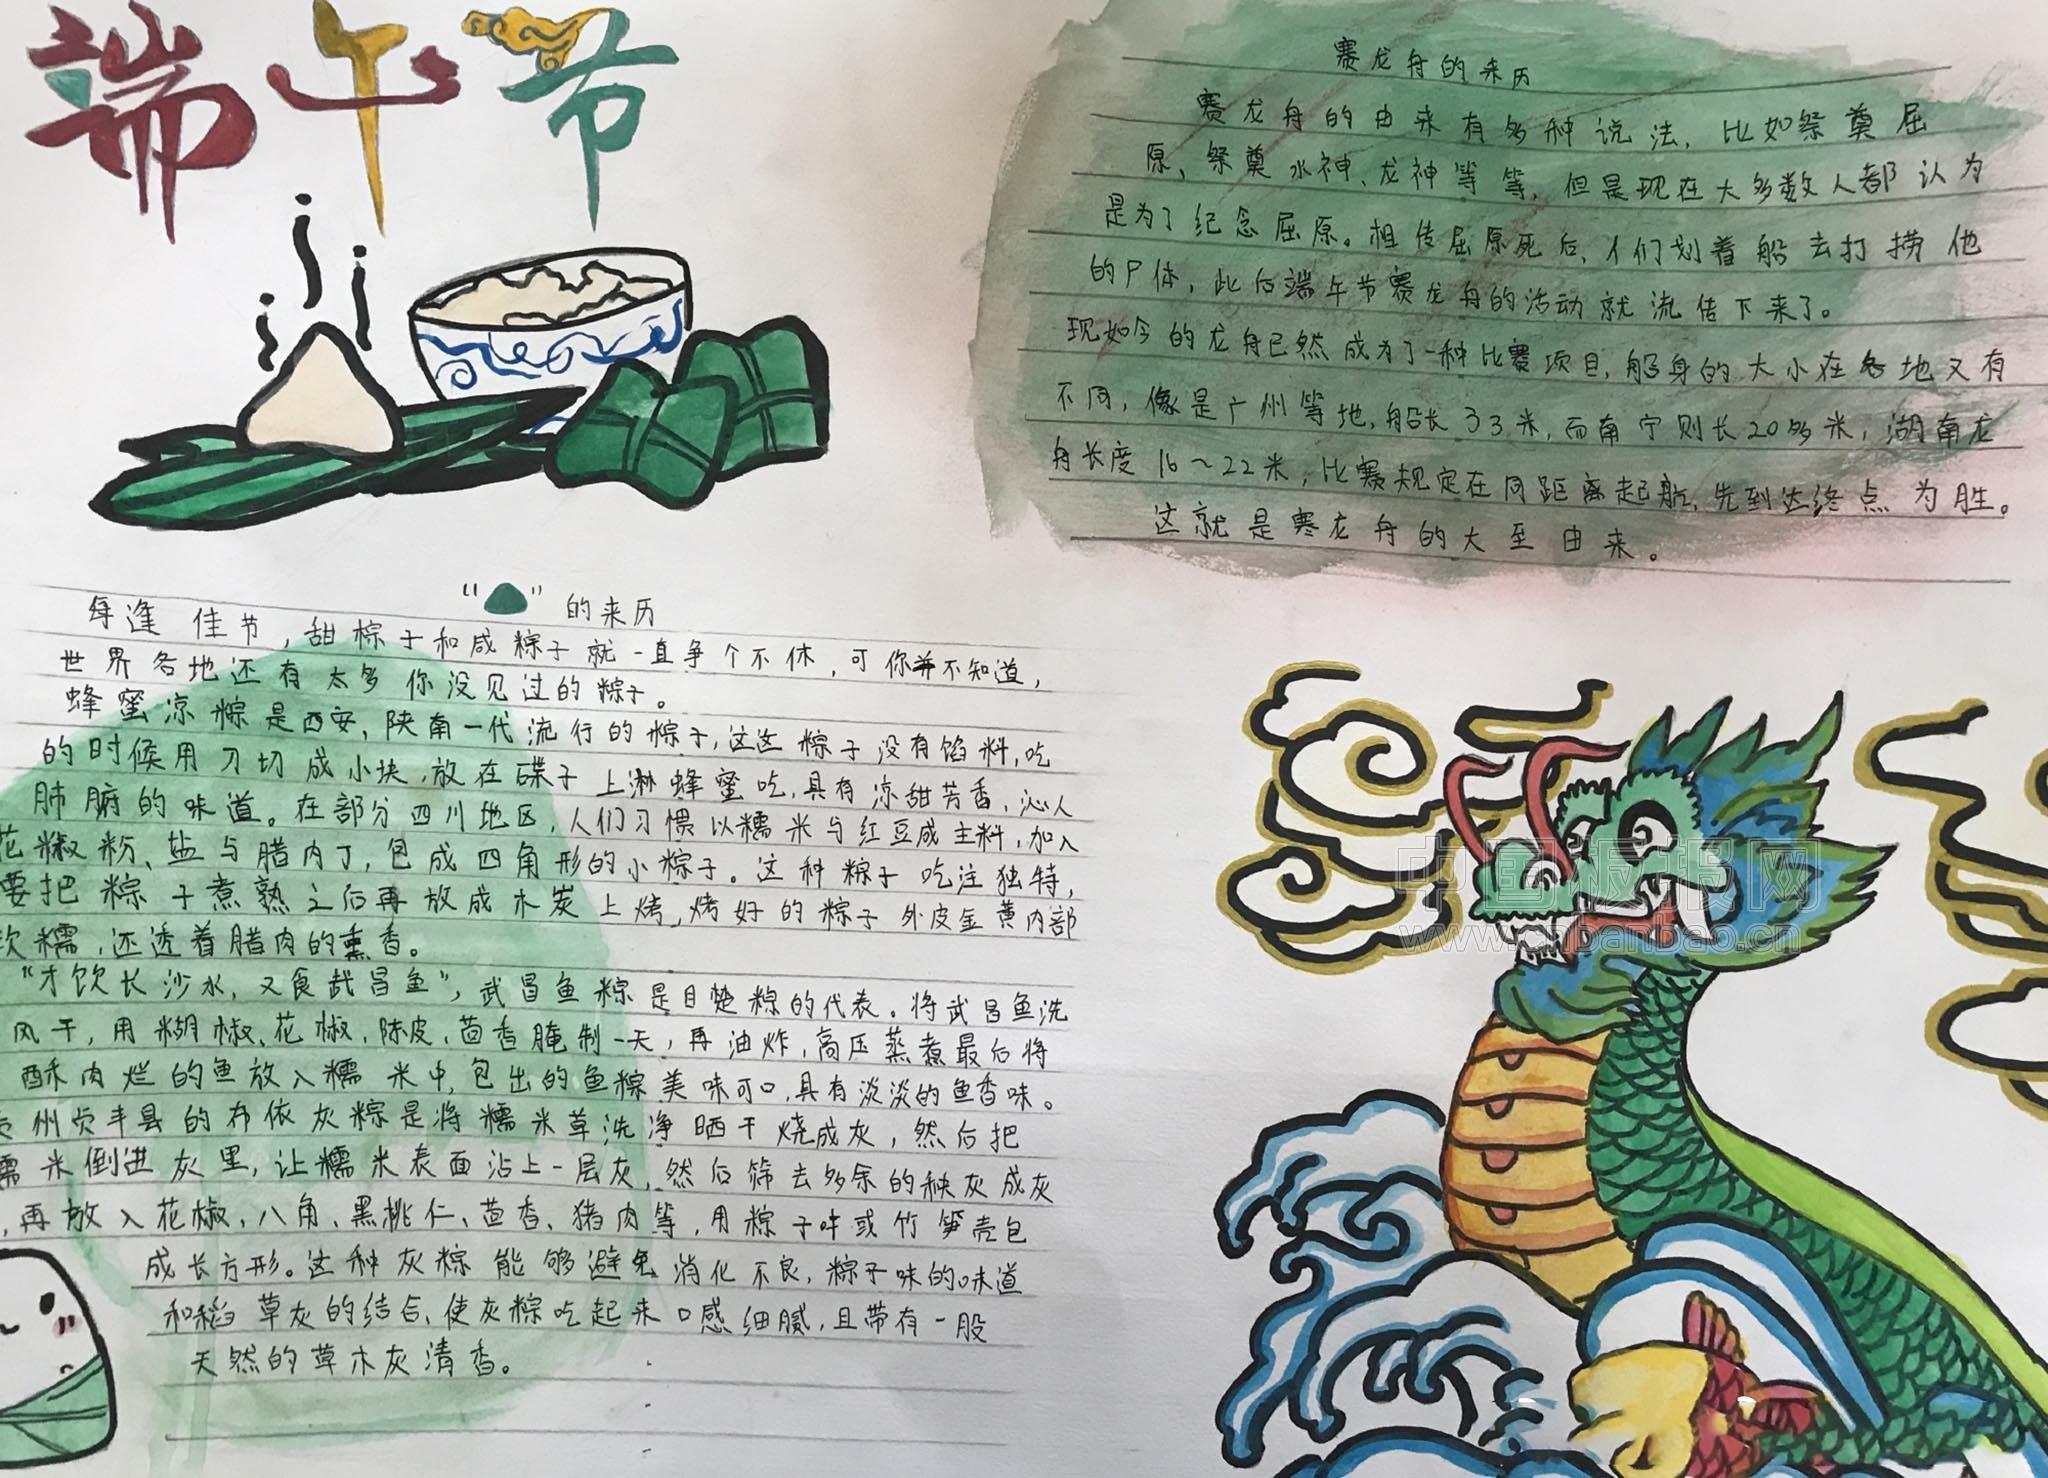 端午节
赛龙舟的来历
赛龙舟的由来有多种说法，比如祭奠屈
原、祭奠水神、龙神等等，但是现在大多数人都认为
是为了纪念屈原。相传屈原死后，人们划着船去打捞他
的尸体，此后端午节赛龙舟的活动就流传下来了。
现如今的龙舟已然成为了一种比赛项目，船身的大小在各地又有
不同，像是广州等地，船长33米，而南宁则长20多米，湖南龙
舟长度16～22米，比赛规定在同距离起航，先到达终点为胜。
这就是赛龙舟的大至由来。
“ ”的来历
每逢佳节，甜棕子和咸粽子就一直争个不休，可你并不知道，
世界各地还有太多你没见过的粽子。
蜂蜜凉粽是西安，陕南一代流行的粽子，这这粽子没有馅料，吃
的时候用刀切成小块，放在碟子上淋蜂蜜吃，具有凉甜芳香，沁人
肺腑的味道。在部分四川地区，人们习惯以糯米与红豆成主料，加入
花椒粉、盐与腊肉丁，包成四角形的小粽子。这种粽子吃注独特，
要把粽子煮熟之后再放成木炭上烤，烤好的粽子外皮金黄内部
软糯，还透着腊肉的熏香。
“才饮长沙水，又食武昌鱼”，武昌鱼粽是目楚粽的代表。将武昌鱼洗
风干，用糊椒、花椒，陈皮，茴香腌制一天，再油炸，高压蒸煮最后将
酥肉烂的鱼放入糯米中，包出的鱼粽美味可口，具有淡淡的鱼香味。
州贞丰县的布依灰粽是将糯米草洗净晒干烧成灰，然后把
糯米倒进灰里，让糯米表面沾上一层灰，然后筛去多余的秧灰成灰
，再放入花椒、八角、黑桃仁、茴香、猪肉等，用粽子叶或竹笋壳包
成长方形。这种灰粽能够避免消化不良，粽子味的味道
和稻草灰的结合，使灰粽吃起来口感细腻，且带有一股
天然的草木灰清香。
中国板报网
www.banbao.cn